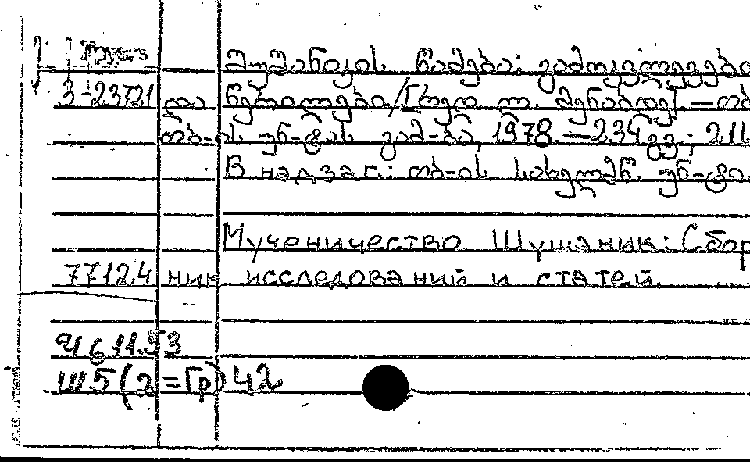 Грузз
შუშანიკის წამება: გამოკვლევები
3-23721 და წერილები/[რედ. ლ. მენაბდე] — თბ
თბ-ის უნ-ტის გამ-ბა, 1978 — 234 გვ; 21
В надзаг: თბ-ის სახელმწ. უნ-ტი.
Мученичество Шушаник: Сбор
77124 ник исследований и статей
Ч611.53
Ш5(2=Гр)42